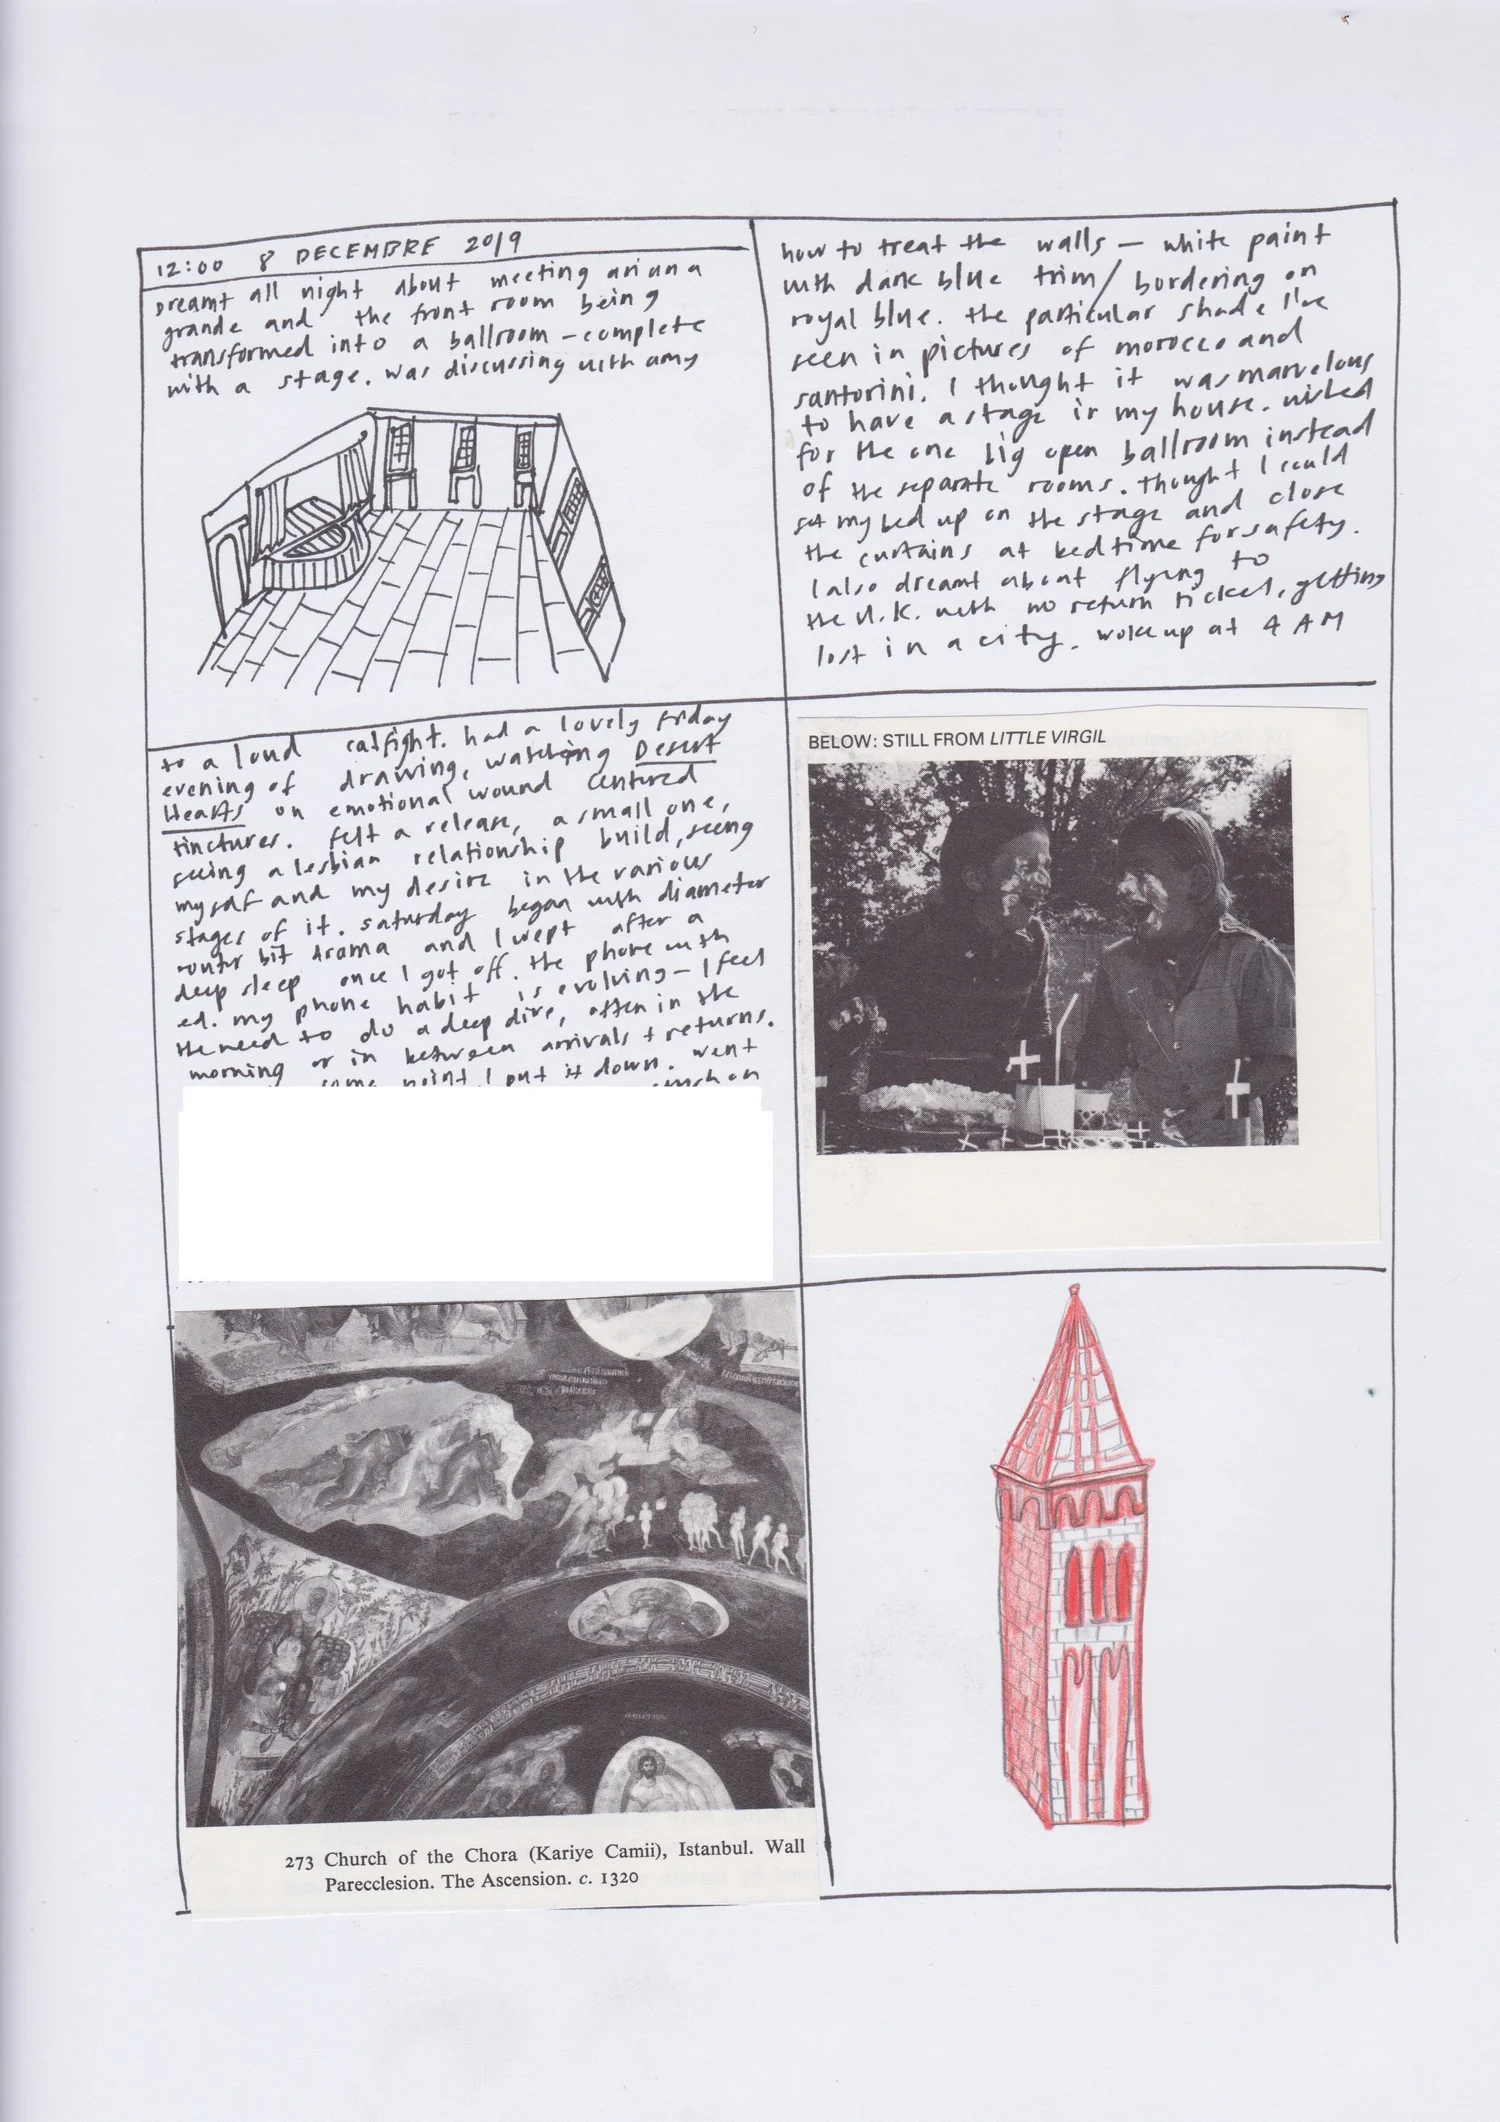 12:00 8 DECEMBRE 2019
Dreamt all night about meeting ariana
grande and the front room being
transformed into a ballroom – complete
with a stage. was discussing with amy
how to treat the walls – white paint
with dark blue trim / bordering on
royal blue. the particular shade I've
seen in pictures of morocco and
santorini. I thought it was marvelous
to have a stage in my house. wished
for the one big open ballroom instead
of the separate rooms. thought I could
set my bed up on the stage and close
the curtains at bedtime for safety.
I also dreamt about flying to
the U.K. with no return ticket, getting
lost in a city. woke up at 4 AM
to a loud catfight. had a lovely friday
evening of drawing, watching Desert
Hearts on emotional wound centured
tinctures. felt a release, a small one,
seeing a lesbian relationship build, seeing
myself and my desire in the various
stages of it. saturday began with diameter
router bit drama and I wept after a
deep sleep once I got off the phone with
ed. my phone habit is evolving – I feel
the need to do a deep dive, often in the
morning or in between arrivals + returns.
some point I put it down. went
BELOW: STILL FROM LITTLE VIRGIL
273 Church of the Chora (Kariye Camii), Istanbul. Wall
Parecclesion. The Ascension. c. 1320